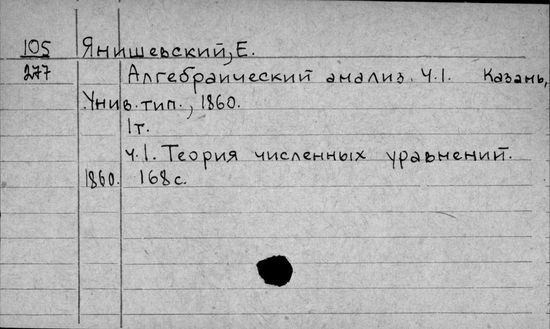 105 Янишевский, Е.
277 Алгебраический анализ. Ч.1. Казань,
Унив. тип., 1860.
1т.
Ч.1. Теория численных уравнений.
1860. 168с.